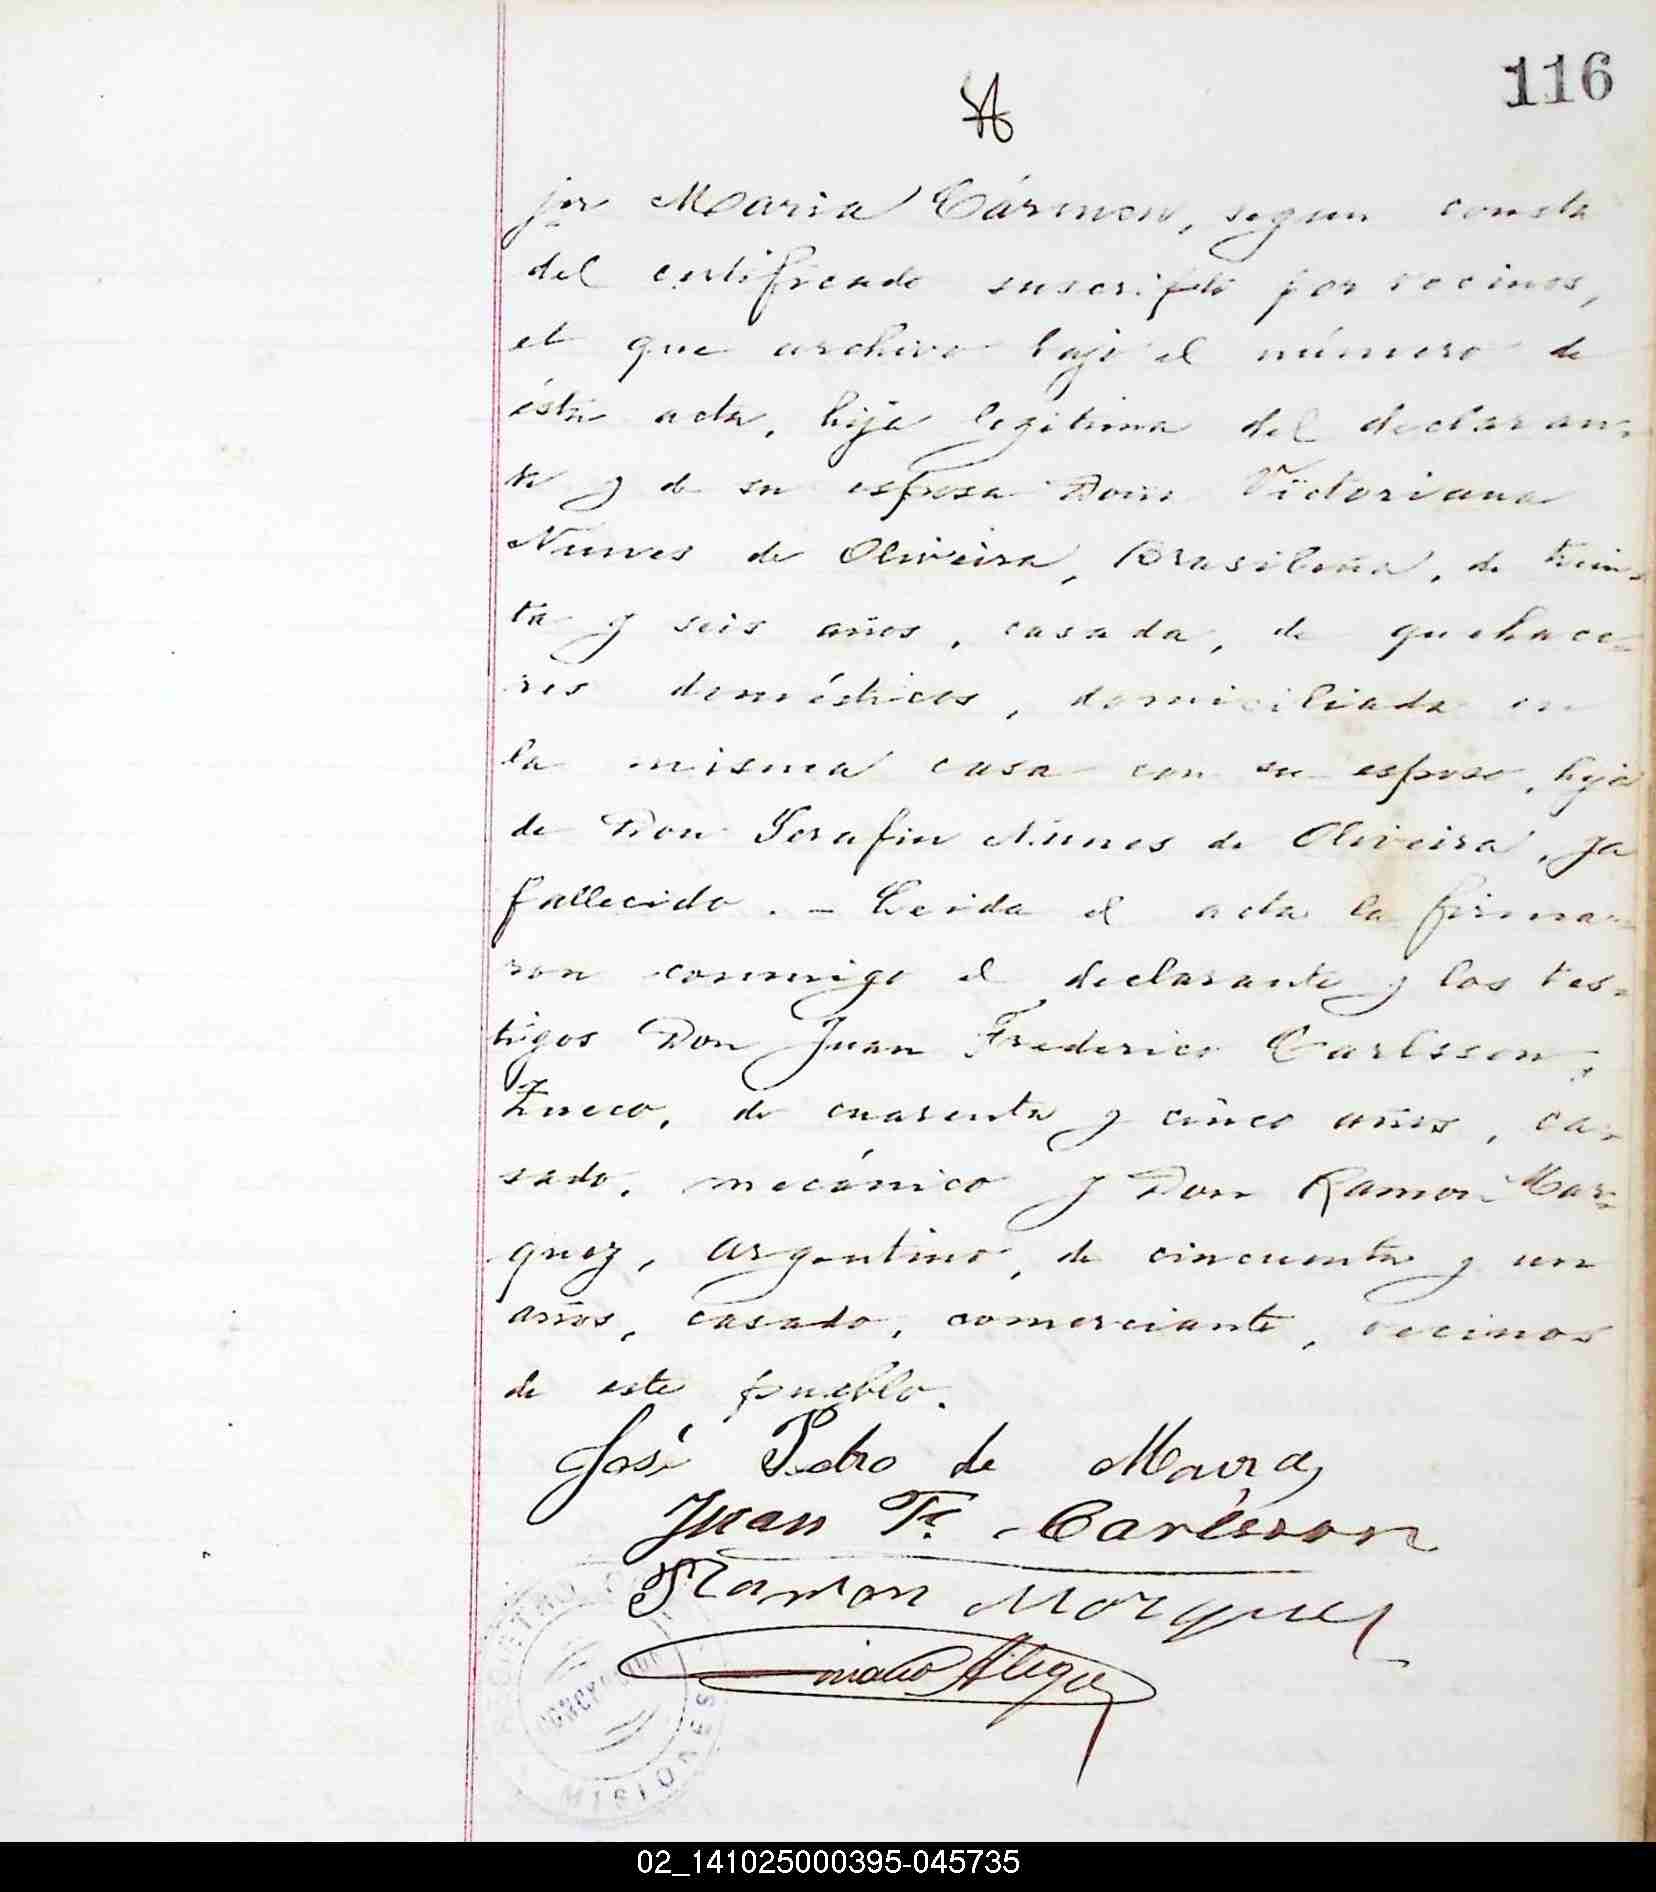 116
jer Maria Cármen, segun consta
del certificado suscripto por vecinos,
el que archivo bajo el número de
ésta acta, hija legitima del declaran-
te y de su esposa Doña Victoriana
Nunes de Oliveira, Brasileña, de trein-
ta y seis años, casada, de quehace-
res domésticos, domiciliada en
la misma casa con su esposo, hija
de Don Serafin Nunes de Oliveira, ya
fallecido. - Leida el acta la firma-
ron conmigo el declarante y los tes-
tigos Don Juan Frederico Carlsson,
Zueco, de cuarenta y cinco años, ca-
sado, mecánico y Don Ramon Mar-
quez, argentino, de cincuenta y un
años, casado, comerciante, vecinos
de este pueblo.
José Pedro de Moura
Juan Fc. Carlsson
Ramon Marquez
Alegre
REGISTRO
CONCEPCION
MISIONES
02_141025000395-045735